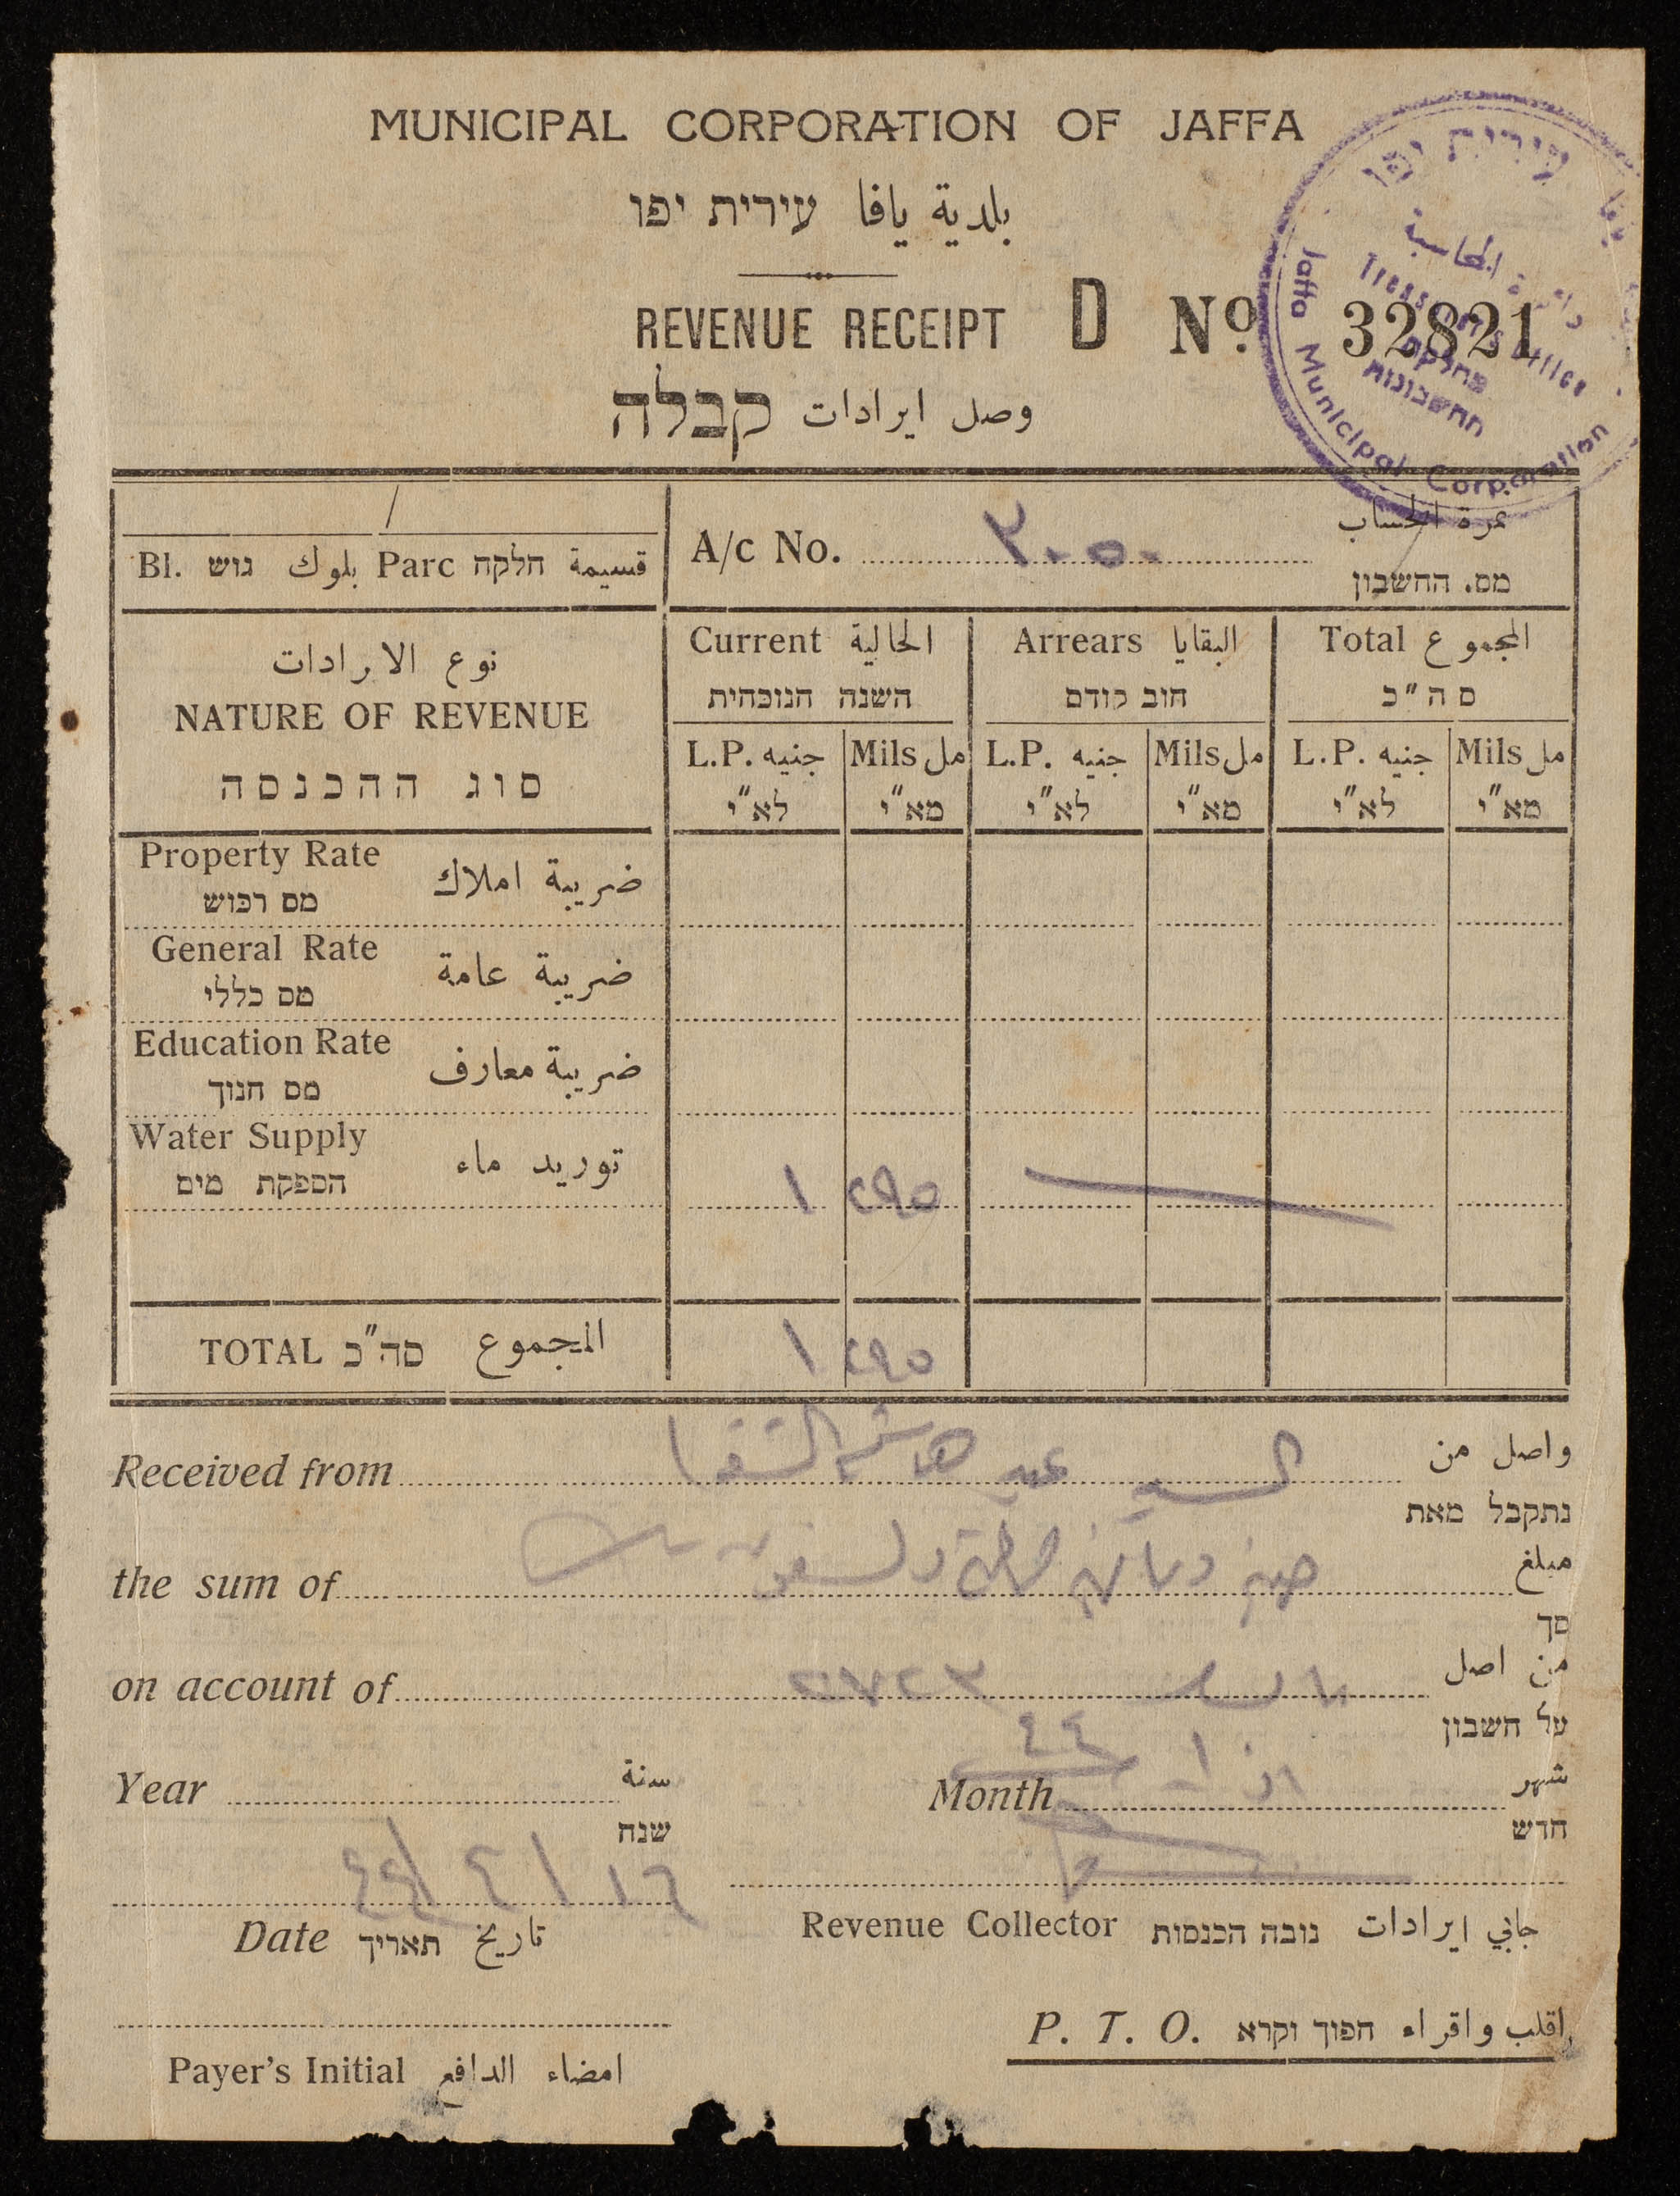 MUNICIPAL CORPORATION OF JAFFA
بلدية يافا עירית יפו
REVENUE RECEIPT D Nº 32821
وصل ايرادات קבלה
עירית יפו
دائرة المحاسبة
Treasurer's Office
מחלקת
חשבונות
Jaffa Municipal Corporation
/
Bl. גוש بلوك Parc חלקה قسيمة
A/c No. ٣٠٥٠ نمرة الحساب
מס. החשבון
نوع الايرادات
NATURE OF REVENUE
סוג ההכנסה
Current الحالية
השנה הנוכחית
Arrears البقايا
חוב קודם
Total المجموع
ס ה"כ
L.P. جنيه Mils مل L.P. جنيه Mils مل L.P. جنيه Mils مل
לא"י מא"י לא"י מא"י לא"י מא"י
Property Rate ضريبة املاك
מס רכוש
General Rate ضريبة عامة
מס כללי
Education Rate ضريبة معارف
מס חנוך
Water Supply توريد ماء
הספקת מים
١ ٢٩٥
TOTAL סה"כ المجموع ١ ٢٩٥
Received from السيد عبد واصل من
נתקבל מאת
the sum of مبلغ
סך
on account of من اصل
על חשבון
٤٤
Year سنة
שנה
Month شهر
חדש
١٦ / ٤ / ٤٤
Date תאריך تاريخ
Revenue Collector גובה הכנסות جابي ايرادات
P. T. O. הפוך וקרא اقلب واقراء
Payer's Initial امضاء الدافع